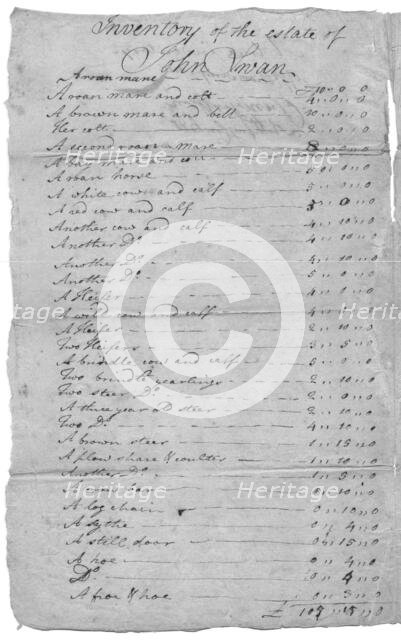 Inventory of the estate of
John Swan
A roan mare
A roan mare and colt — £10 „ 0 „ 0
A brown mare and bell 4 „ 0 „ 0
Her colt 10 „ 0 „ 0
A second roan mare 2 „ 0 „ 0
A bay mare 8 „ 0 „ 0
A roan horse 5 „ 0 „ 0
A white cow and calf 5 „ 0 „ 0
A red cow and calf 5 „ 0 „ 0
Another cow and calf 4 „ 10 „ 0
Another Do. 4 „ 10 „ 0
Another Do. 4 „ 10 „ 0
Another Do. 5 „ 0 „ 0
A Heifer 4 „ 0 „ 0
A wild cow and calf 4 „ 10 „ 0
A Heifer 2 „ 10 „ 0
Two Heifers 3 „ 5 „ 0
A brindle cow and calf 5 „ 0 „ 0
Two brindle yearlings 2 „ 10 „ 0
Two steer Do. 2 „ 0 „ 0
A three year old steer 2 „ 10 „ 0
Two Do. 4 „ 10 „ 0
A brown steer 1 „ 15 „ 0
A plow share & coulter 1 „ 10 „ 0
Another Do. 1 „ 5 „ 0
10 „ 0
A log chain 0 „ 10 „ 0
A sythe 0 „ 4 „ 0
A still door 0 „ 15 „ 0
A hoe 0 „ 4 „ 0
Do. 0 „ 4 „ 0
A froe & hoe 0 „ 3 „ 0
£ 105 „ 15 „ 0
Heritage
Heritage
Heritage
Heritage
Heritage
Heritage
Heritage
Heritage
Heritage
Heritage